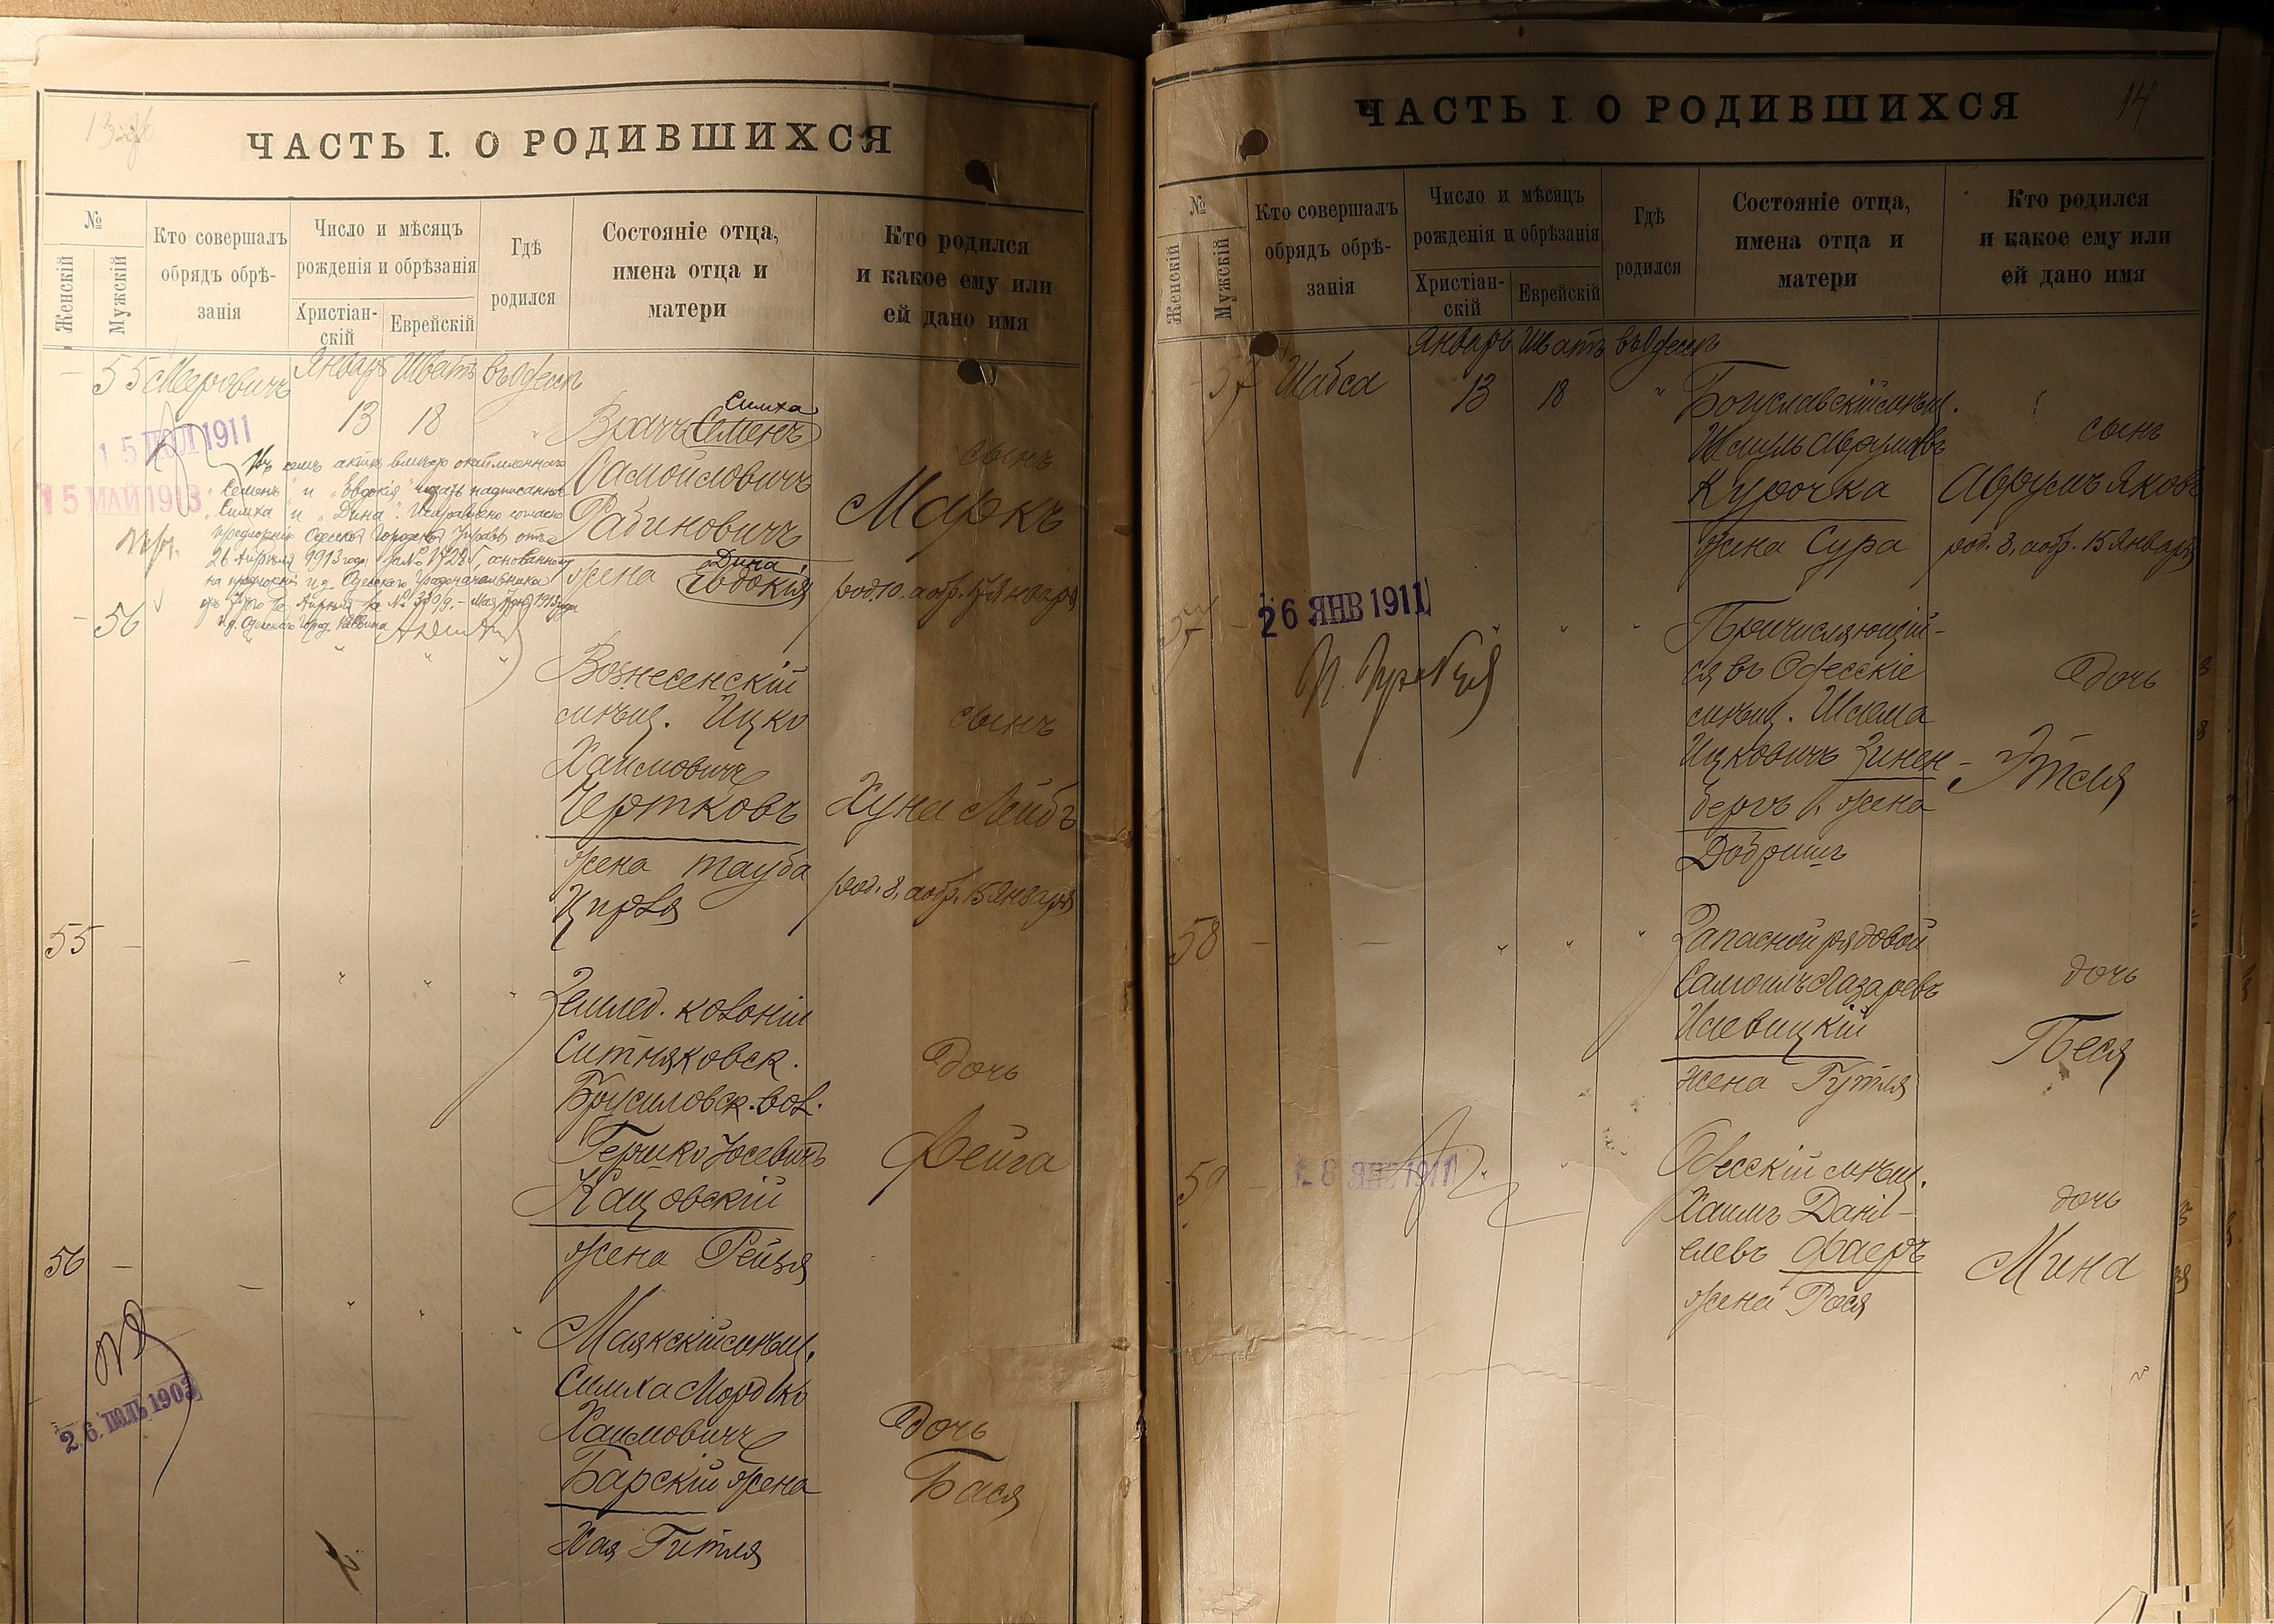 ЧАСТЬ I. О РОДИВШИХСЯ
№
Женскій
Мужскій
Кто совершалъ
обрядъ обрѣ-
занія
Число и мѣсяцъ
рожденія и обрѣзанія
Христіан-
скій
Еврейскій
Гдѣ
родился
Состояніе отца,
имена отца и
матери
Кто родился
и какое ему или
ей дано имя
— 55 Меровичъ Январь Шватъ въ Одессѣ
13 18 "
Симха
Врачъ Семенъ
Самойловичъ
Рабиновичъ
Дина
жена Евдокія
сынъ
Маркъ
род. 10, а обр. 17 Января
15 ІЮЛ 1911
15 МАЙ 1913
Въ семъ актѣ вмѣсто окаймленнаго
"Семенъ" и "Евдокія" читать надписанное
"Симха" и "Дина". Исправлено согласно
предложенія Одесской Городской Управы отъ
26 Апрѣля 1913 года за №
на предложеніи и.д. Одесскаго Градоначальника
И.д. Одесскаго Город. Раввина
— 56 " " "
Вознесенскій
мѣщ. Ицко
Хаимовичъ
Чертковъ
жена Тауба
Цирля
сынъ
Хуна Лейбъ
род. 8, а обр. 15 Января
55 — — " " "
Землед. колоніи
Ситняковск.
Брусиловск. вол.
Гершко Іосевичъ
Кацовскій
жена Рейзя
дочь
Фейга
56 — — " " "
Маякскій мѣщ.
Симха Мордко
Хаимовичъ
Барскій жена
Хая Гитля
дочь
Бася
26. ІЮЛЬ 1903
14
ЧАСТЬ I. О РОДИВШИХСЯ
№
Женскій
Мужскій
Кто совершалъ
обрядъ обрѣ-
занія
Число и мѣсяцъ
рожденія и обрѣзанія
Христіан-
скій
Еврейскій
Гдѣ
родился
Состояніе отца,
имена отца и
матери
Кто родился
и какое ему или
ей дано имя
Январь Шватъ въ Одессѣ
— 57 Шабса 13 18 "
Богуславскій мѣщ.
Шмуль Аврумовъ
Курочка
жена Сура
сынъ
Аврумъ Яковъ
род. 8, а обр. 15 Января
57 — " " "
26 ЯНВ 1911
Причисляющій-
ся въ Одесскіе
мѣщ. Шлема
Ицковичъ Зинен-
бергъ жена
Добришъ
дочь
Этля
58 — — " " "
Запасной рядовой
Самоилъ Лазаревъ
Илевицкій
жена Гутля
дочь
Песя
59 — " "
28 ЯНВ 1911
Одесскій мѣщ.
Хаимъ Даніі-
елевъ Фаеръ
жена Рося
дочь
Мина